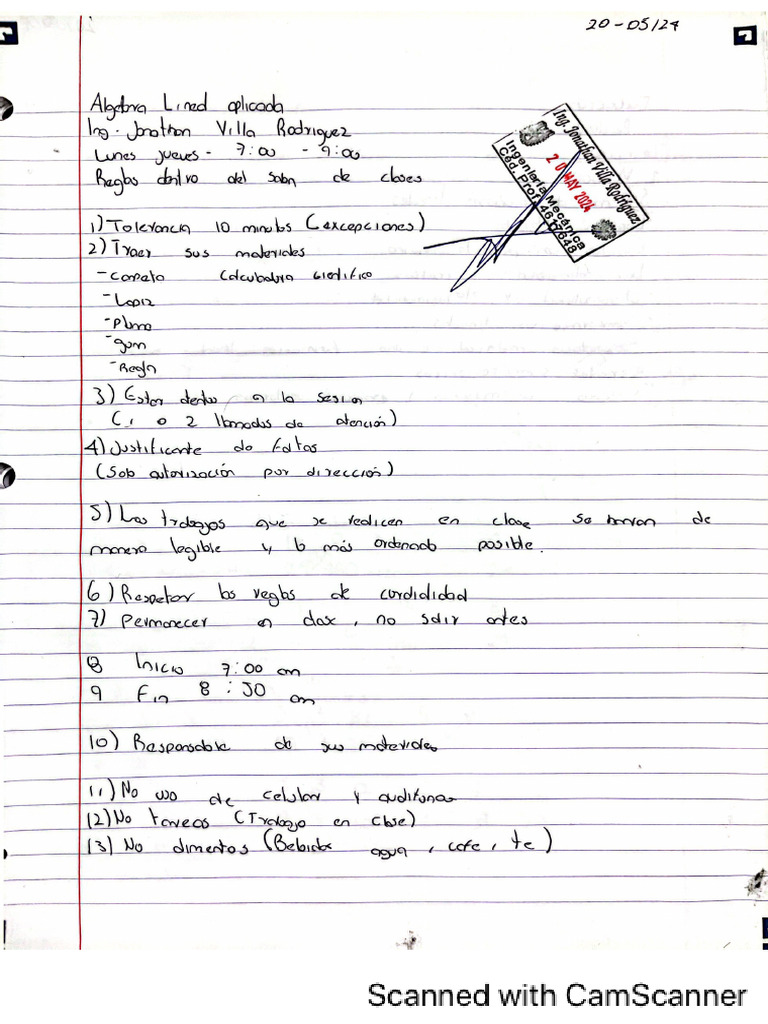 20-05/24
Algebra Lineal aplicada
Ing. Jonathan Villa Rodriguez
Lunes jueves - 7:00 - 9:00
Reglas dentro del salon de clases
Ing. Jonathan Villa Rodríguez
20 MAY 2024
Ingeniería Mecánica
Céd. Prof. 4617648
1) Tolerancia 10 minutos (excepciones)
2) Traer sus materiales
- carpeta calculadora cientifica
- Lapiz
- pluma
- goma
- Regla
3) Estar dentro en la sesion
(1 o 2 llamadas de atención)
4) Justificante de faltas
(Sob autorización por dirección)
5) Los trabajos que se realicen en clase se haran de
manera legible y lo más ordenado posible.
6) Respetar las reglas de cordialidad
7) Permanecer en clase, no salir antes
8 Inicio 7:00 am
9 Fin 8:50 am
10) Responsable de sus materiales
11) No uso de celular y audifonos
12) No tareas (Trabajo en clase)
13) No alimentos (Bebidas agua, cafe, te)
Scanned with CamScanner